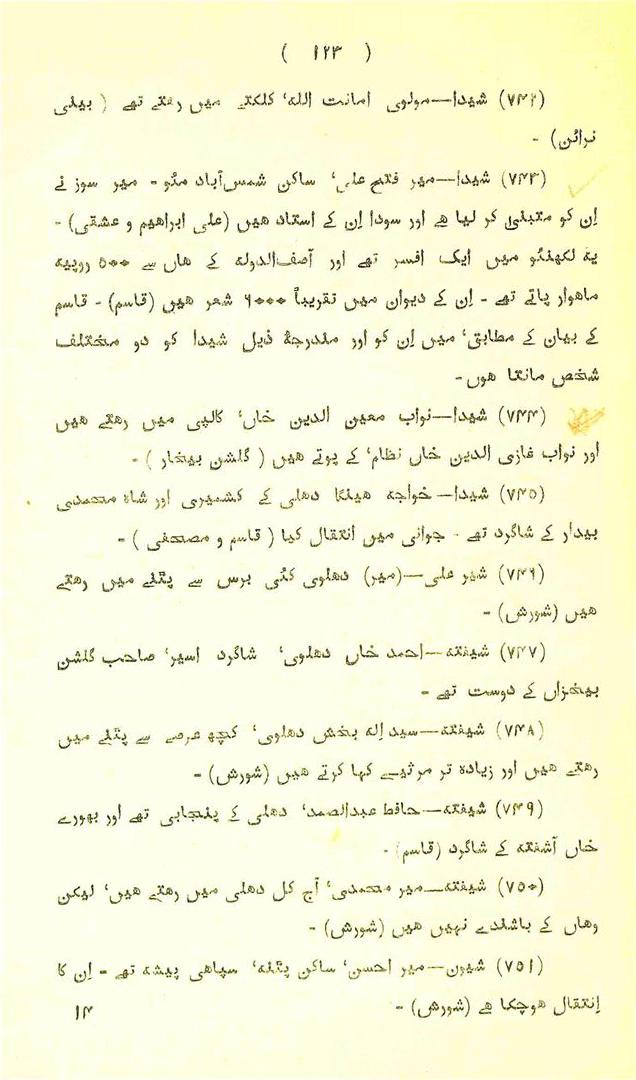 ( ۱۲۳ )
(۷۴۲) شیدا—مولوی امانت الله‘ کلکتے میں رهتے تھے ( بینی
نرائن) -
(۷۴۳) شیدا—میر فتح علی‘ ساکن شمس‌آباد مئو - میر سوز نے
اِن کو متبنیٰ کر لیا هے اور سودا اِن کے استاد هیں (علی ابراهیم و عشقی) -
یه لکھنئو میں ایک افسر تھے اور آصف‌الدوله کے هاں سے ۵۰۰ روپیه
ماهوار پاتے تھے - اِن کے دیوان میں تقریباً ۶۰۰۰ شعر هیں (قاسم) - قاسم
کے بیان کے مطابق‘ میں اِن کو اور مندرجۂ ذیل شیدا کو دو مختلف
شخص مانتا هوں-
(۷۴۴) شیدا—نواب معین الدین خاں‘ کالپی میں رهتے هیں
اور نواب غازی الدین خاں نظام‘ کے پوتے هیں ( گلشن بیخار ) -
(۷۴۵) شیدا—خواجه هینگا دهلی کے کشمیری اور شاه محمدی
بیدار کے شاگرد تھے - جوانی میں انتقال کیا ( قاسم و مصحفی ) -
(۷۴۶) شیر علی—(میر) دهلوی کئی برس سے پٹنے میں رهتے
هیں (شورش) -
(۷۴۷) شیفته—احمد خاں دهلوی‘ شاگرد اسیر‘ صاحب گلشن
بیخزاں کے دوست تھے -
(۷۴۸) شیفته—سید اِله بخش دهلوی‘ کچھ عرصے سے پٹنے میں
رهتے هیں اور زیاده تر مرثیے کہا کرتے هیں (شورش) -
(۷۴۹) شیفته—حافظ عبدالصمد‘ دهلی کے پنجابی تھے اور بھورے
خاں آشفته کے شاگرد (قاسم) -
(۷۵۰) شیفته—میر محمدی‘ آج کل دهلی میں رهتے هیں‘ لیکن
وهاں کے باشندے نہیں هیں (شورش) -
(۷۵۱) شیون—میر احسن‘ ساکن پٹنه‘ سپاهی پیشه تھے - اِن کا
اِنتقال هوچکا هے (شورش) -
۱۴